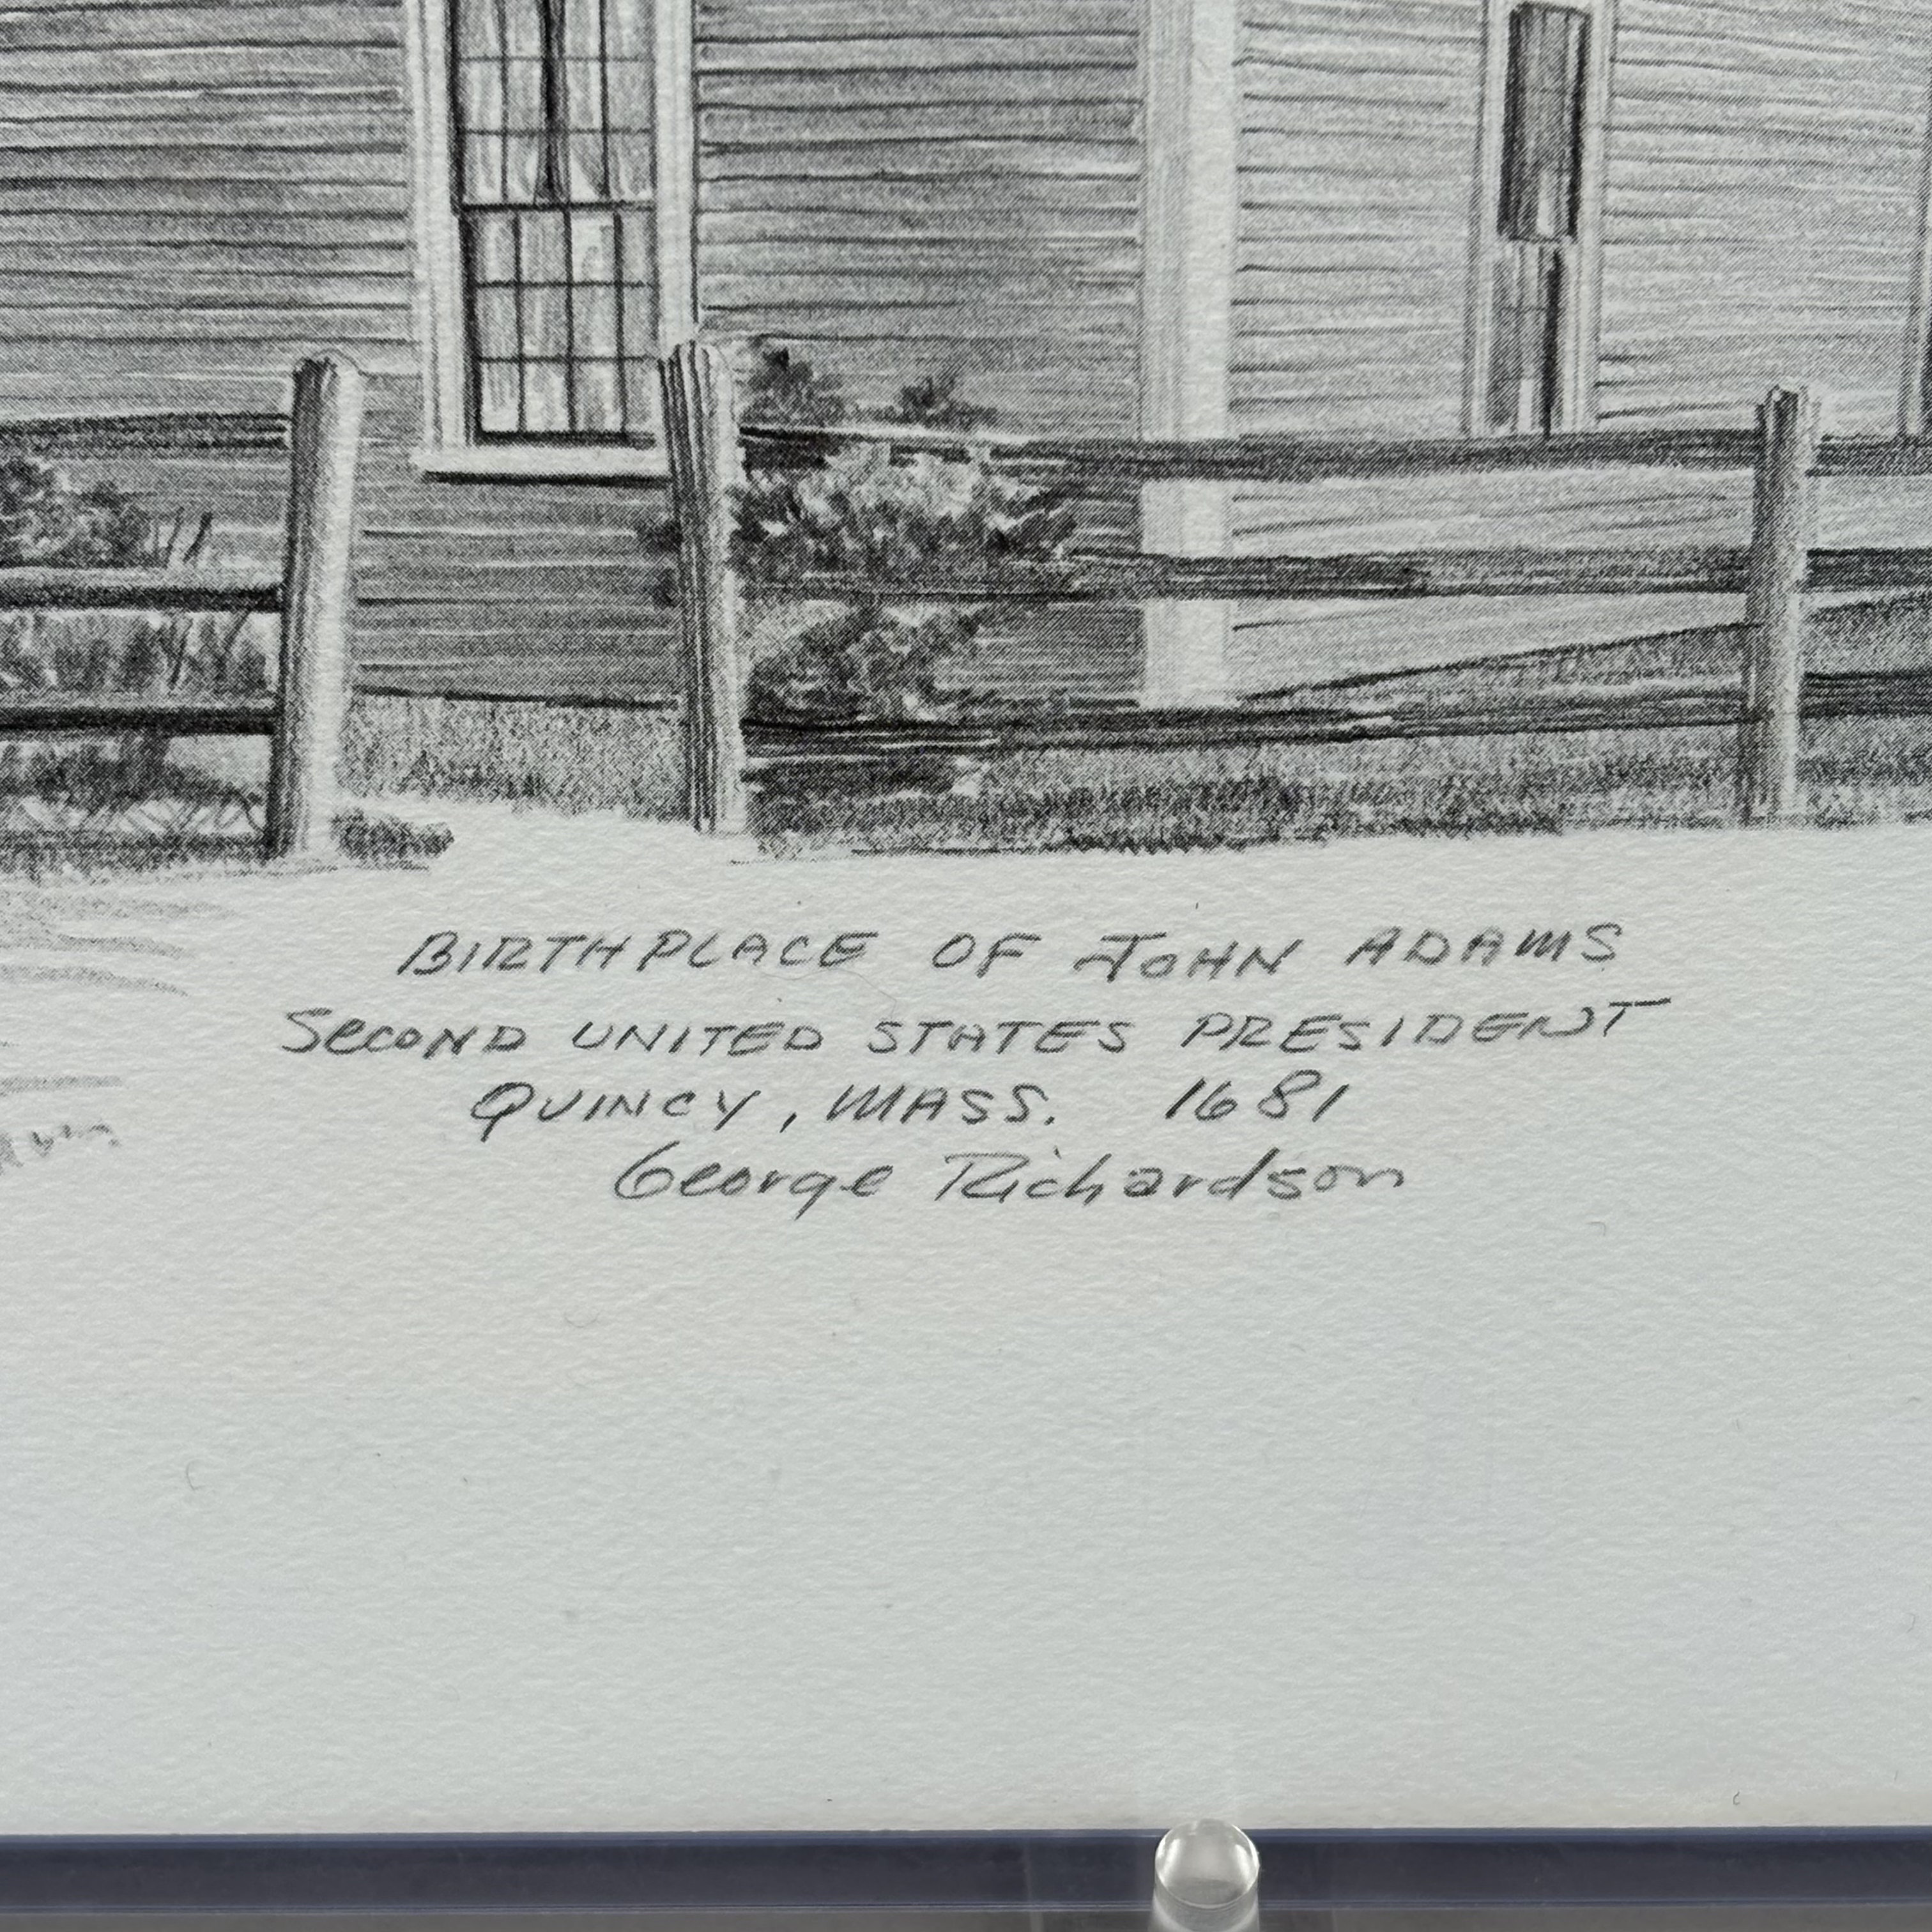 BIRTHPLACE OF JOHN ADAMS
SECOND UNITED STATES PRESIDENT
QUINCY, MASS. 1681
George Richardson